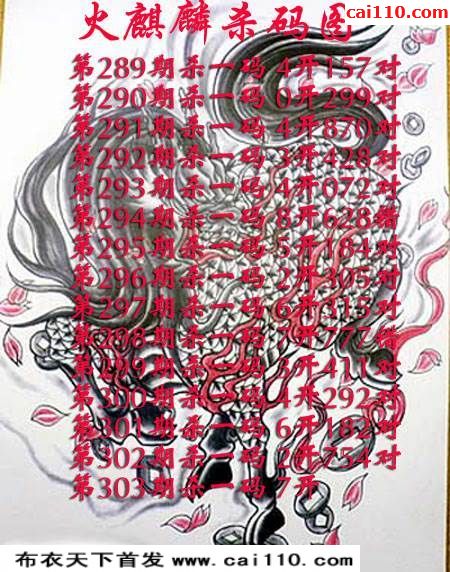 cai110.com
火麒麟杀码图
第289期杀一码 4开157对
第290期杀一码 0开299对
第291期杀一码 4开870对
第292期杀一码 3开428对
第293期杀一码 4开072对
第294期杀一码 8开628错
第295期杀一码 5开184对
第296期杀一码 2开305对
第297期杀一码 6开315对
第298期杀一码 7开777错
第299期杀一码 3开411对
第300期杀一码 4开292对
第301期杀一码 6开182对
第302期杀一码 2开754对
第303期杀一码 7开
布衣天下首发 www.cai110.com